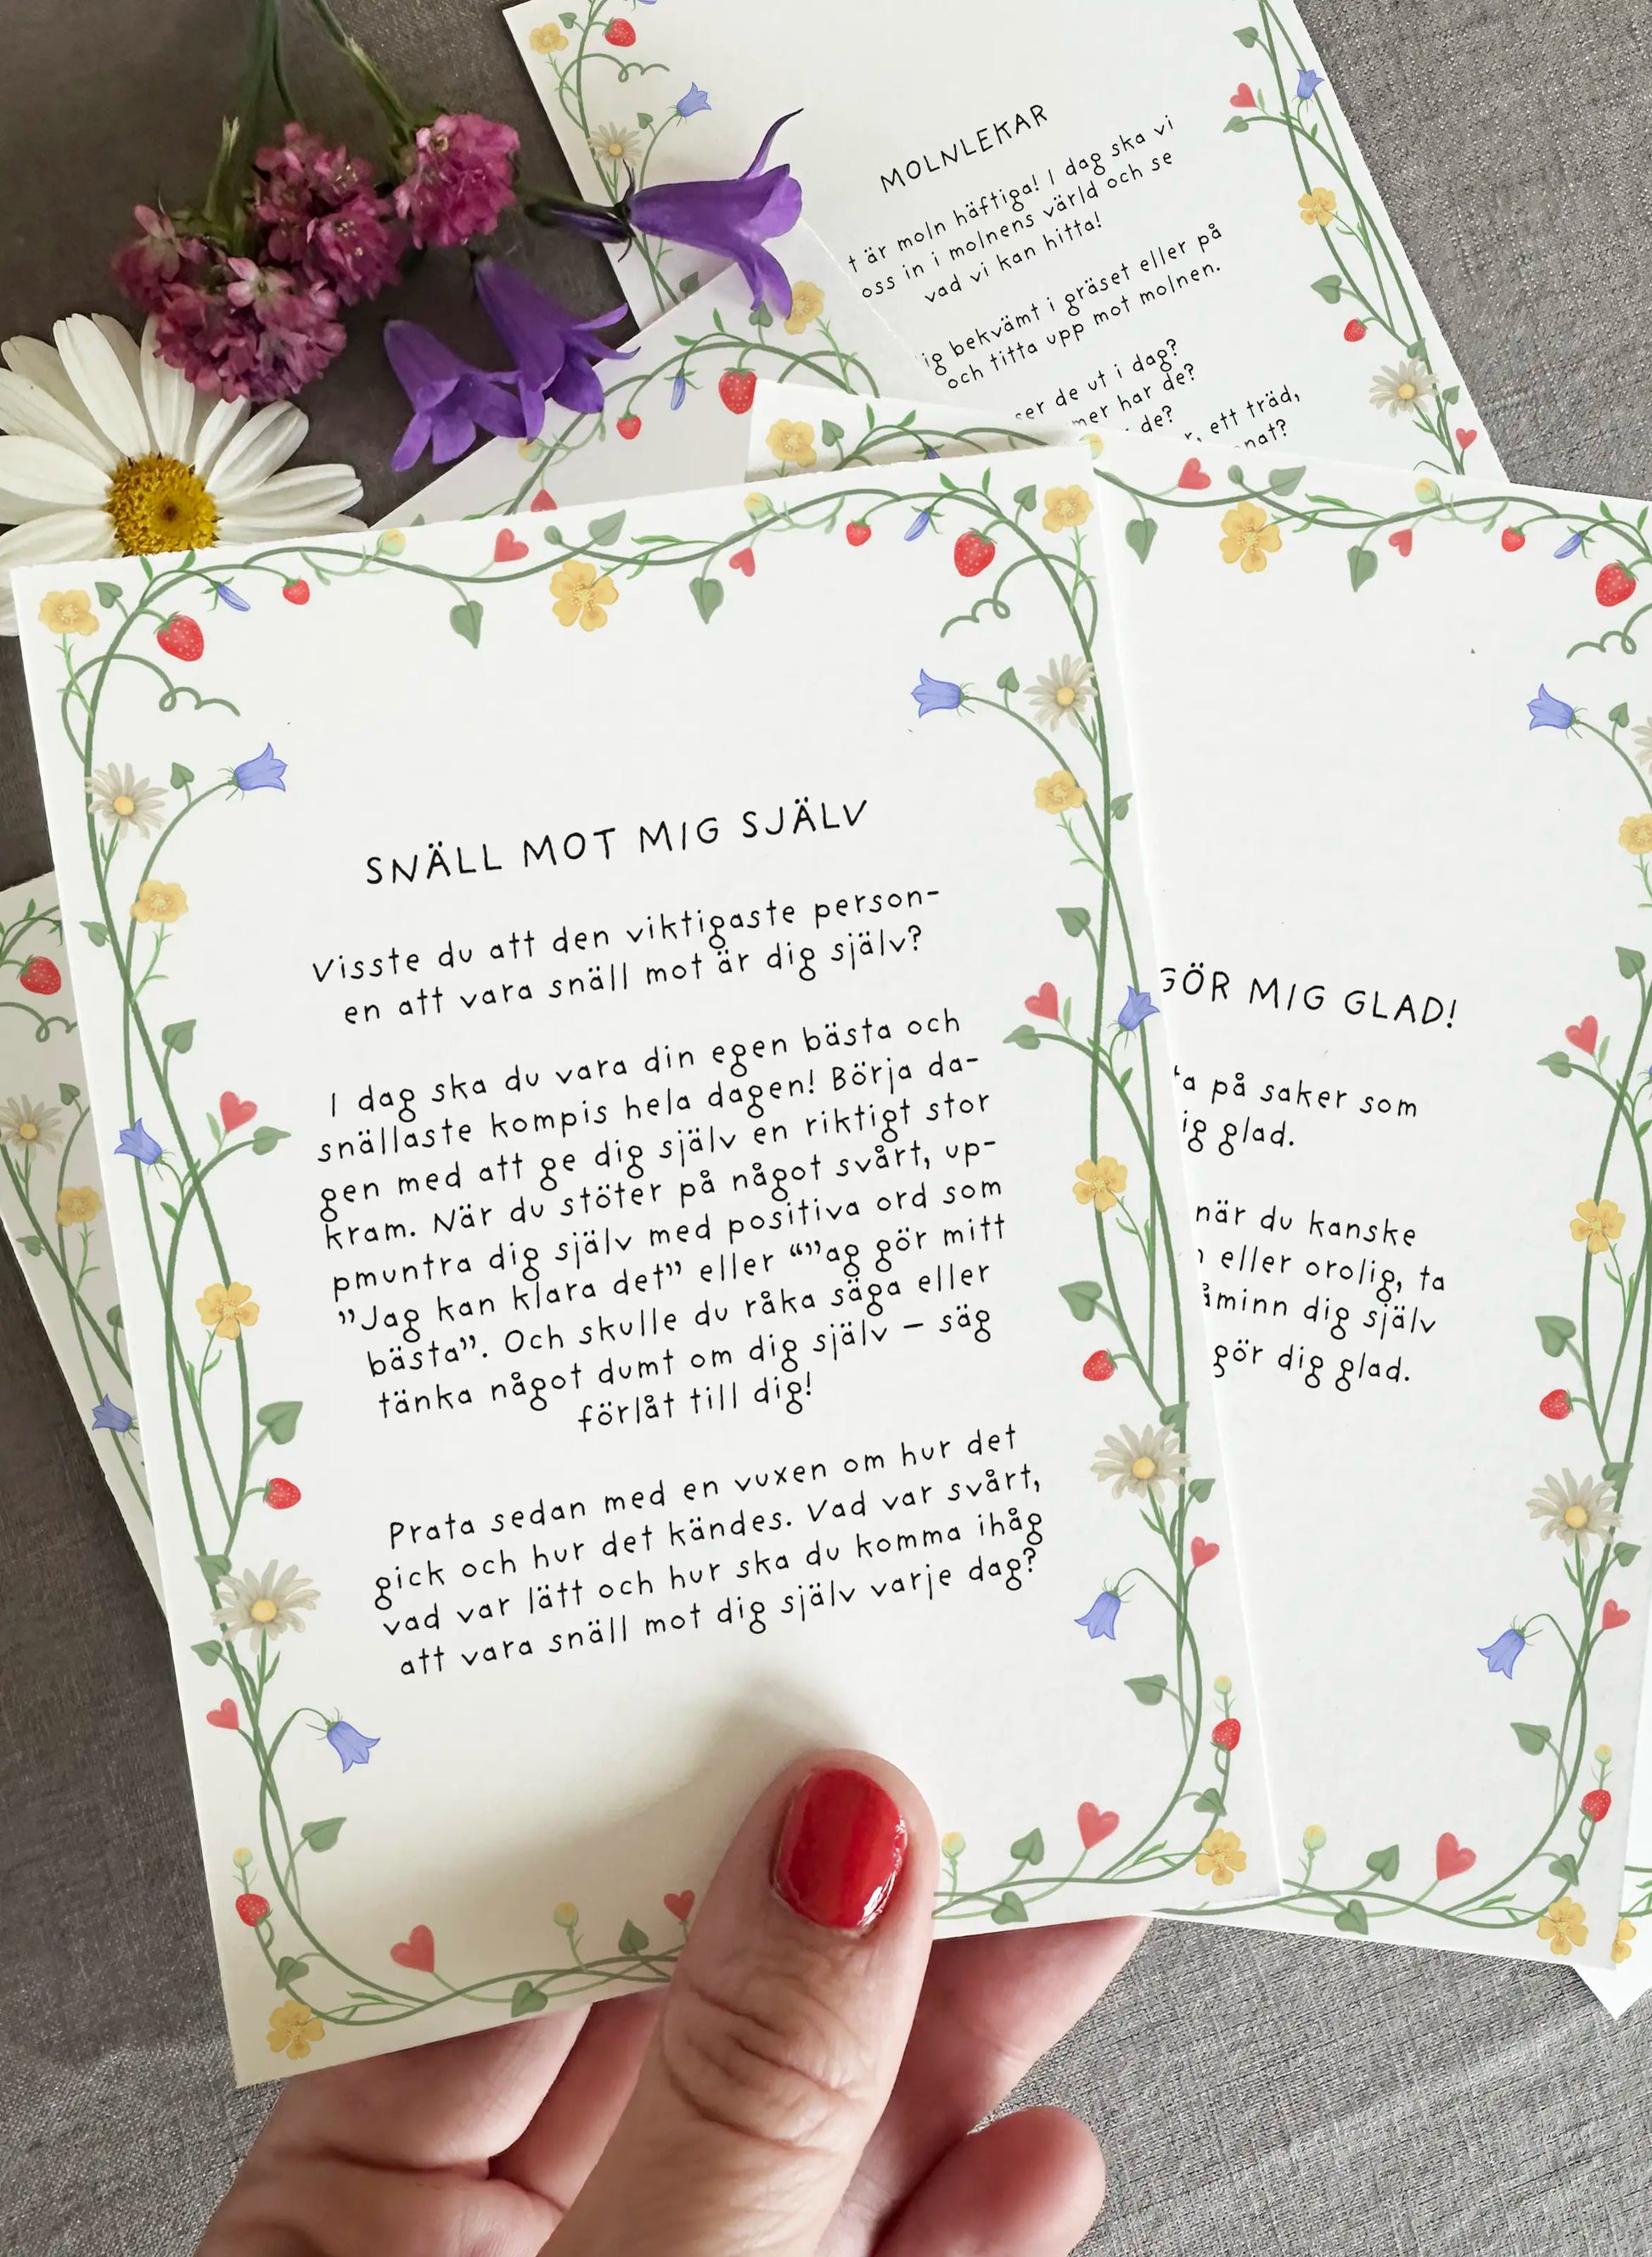 MOLNLEKAR
är moln häftiga! I dag ska vi
oss in i molnens värld och se
vad vi kan hitta!
bekvämt i gräset eller på
och titta upp mot molnen.
de ut i dag?
har de?
de?
ett träd,
SNÄLL MOT MIG SJÄLV
Visste du att den viktigaste person-
en att vara snäll mot är dig själv?
I dag ska du vara din egen bästa och
snällaste kompis hela dagen! Börja da-
gen med att ge dig själv en riktigt stor
kram. När du stöter på något svårt, up-
pmuntra dig själv med positiva ord som
”Jag kan klara det” eller “”ag gör mitt
bästa”. Och skulle du råka säga eller
tänka något dumt om dig själv – säg
förlåt till dig!
Prata sedan med en vuxen om hur det
gick och hur det kändes. Vad var svårt,
vad var lätt och hur ska du komma ihåg
att vara snäll mot dig själv varje dag?
GÖR MIG GLAD!
på saker som
glad.
när du kanske
eller orolig, ta
dig själv
gör dig glad.